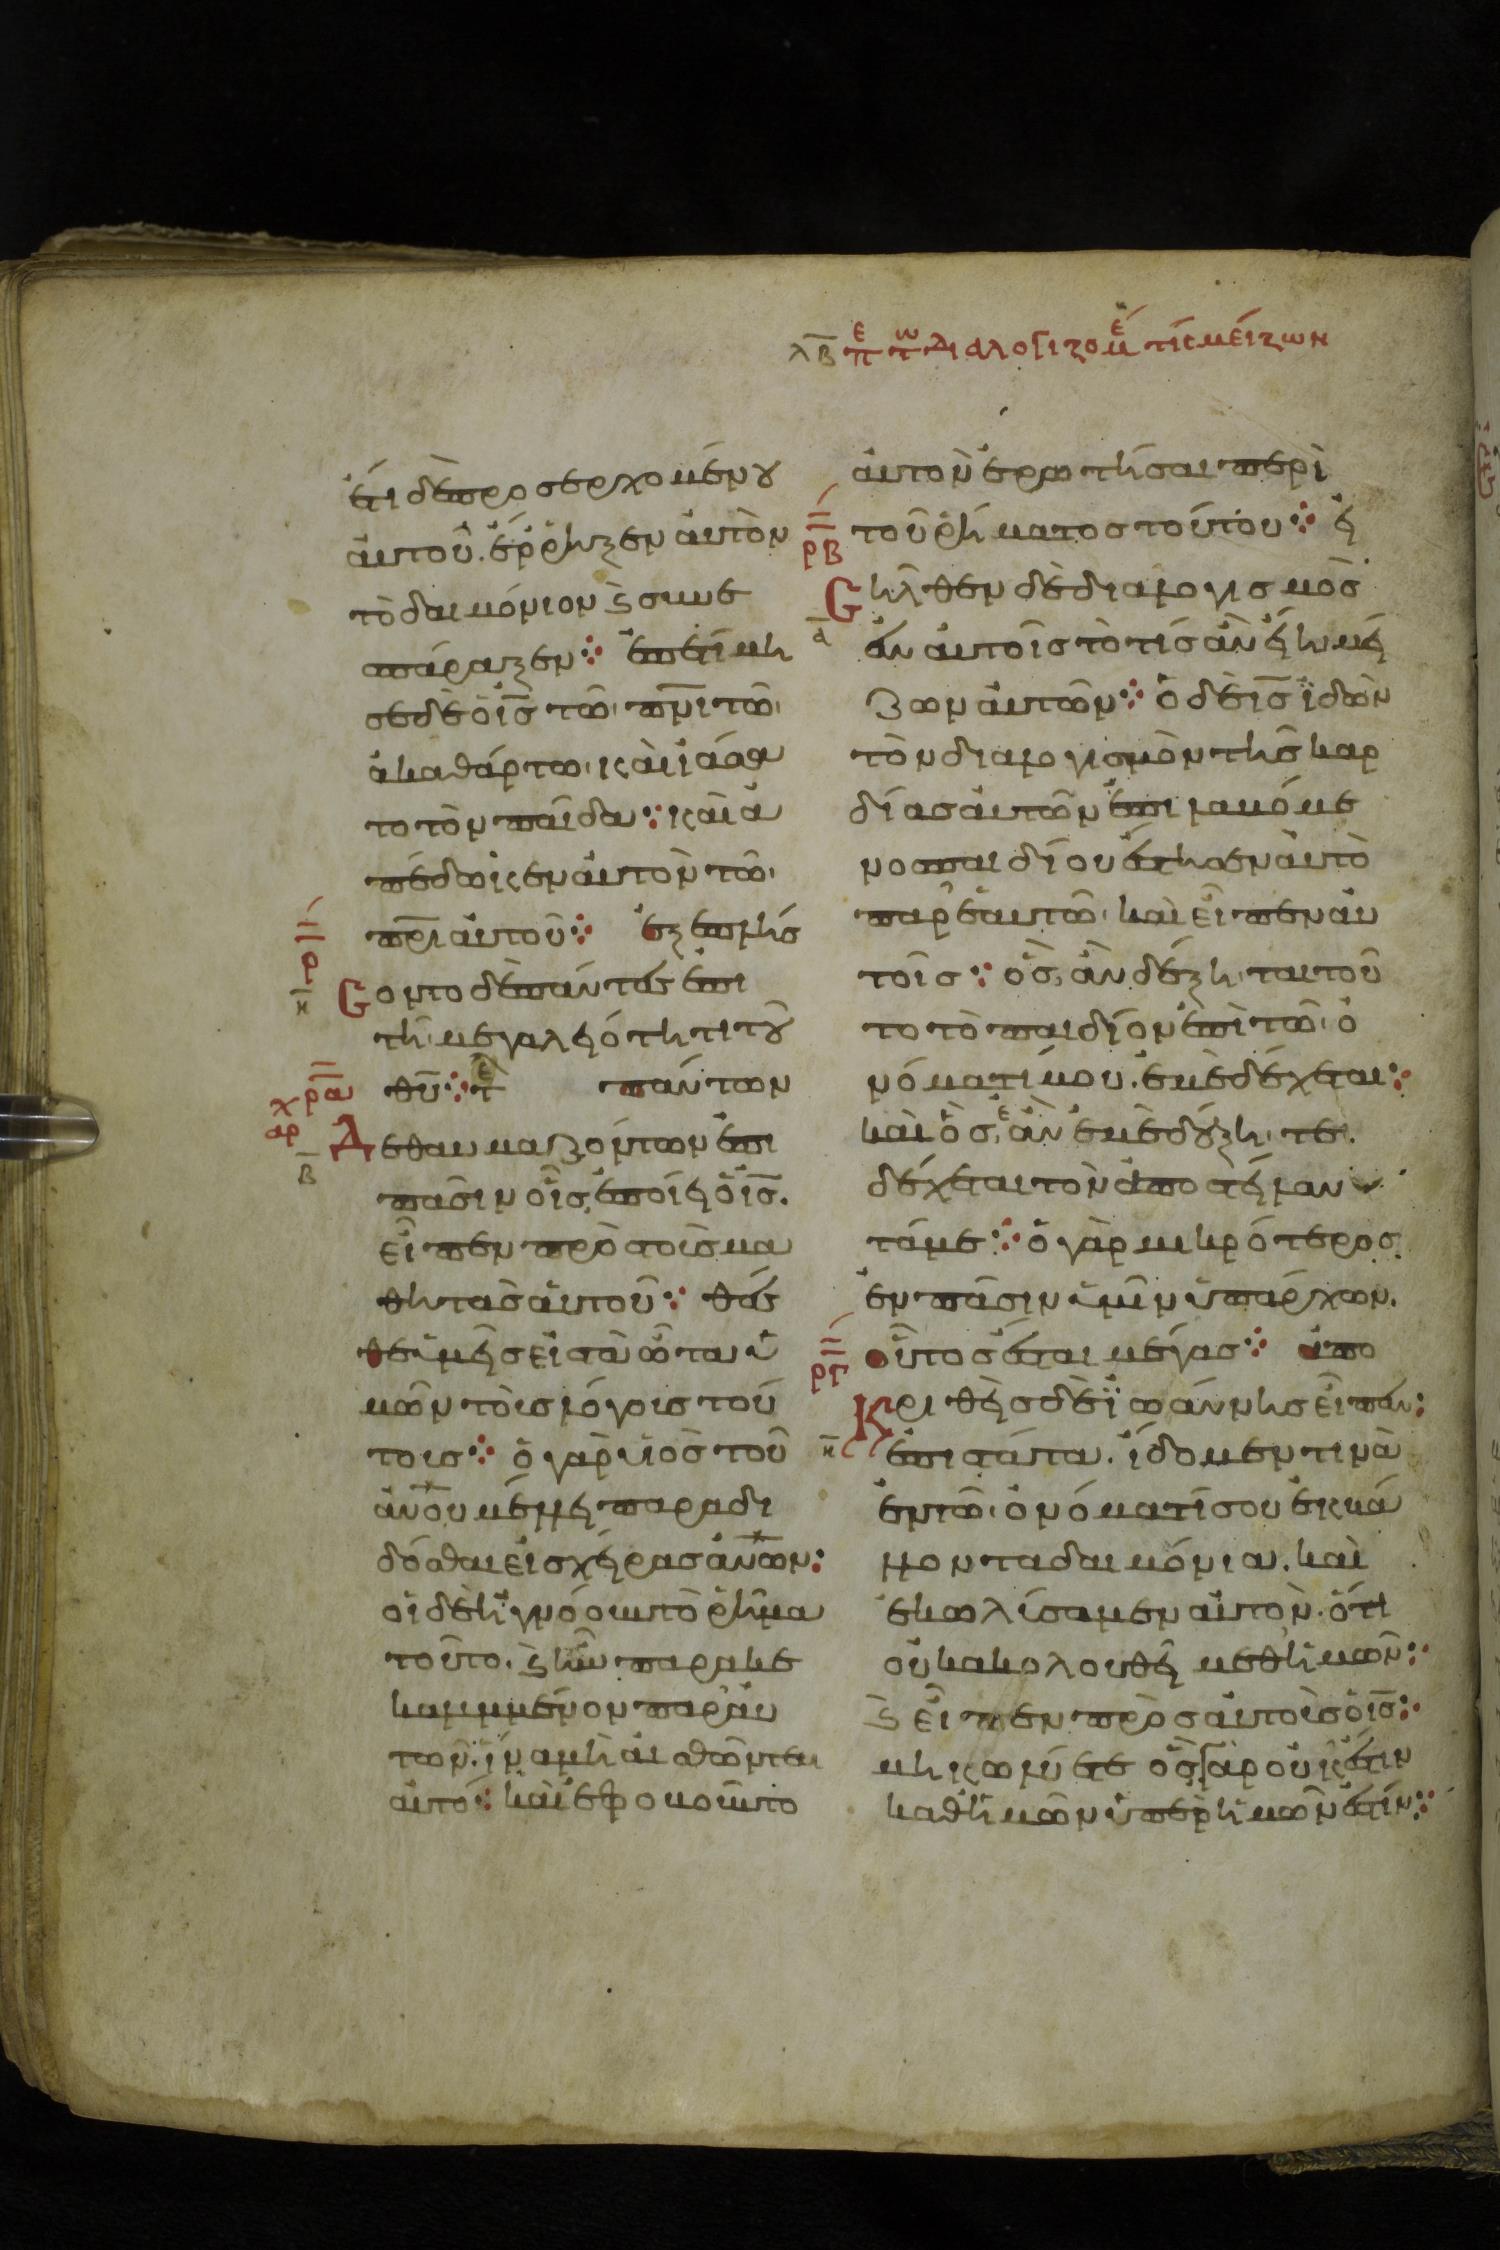 λβ πε τω διαλογιζομέ τίς μείζων
ἔτι δὲ προσερχομένου
αὐτοῦ. ἔρρηξεν αὐτὸν
τὸ δαιμόνιον ϗ συνε
σπάραξεν· ἐπετίμη
σε δὲ ὁ ις τῶ πνι τῶ
ἀκαθάρτω· καὶ ἰάσα
το τὸν παῖδα· καὶ ἀ
πέδωκεν αὐτὸν τῶ
πρι αὐτοῦ· ἐξεπλήσ
ρ
η
Σοντο δὲ πάντες ἐπι
τῆ μεγαλειότητι τοῦ
θυ· τε πάντων
ρα
χρ
αρ
β
Δε θαυμαζόντων ἐπι
πᾶσιν οἷς ἐποίει ὁ ις.
εἶπεν πρὸς τοὺς μα
θητὰς αὐτοῦ· θέσ
θε ὑμεῖς εἰς τὰ ὦτα ὑ
μῶν τοὺς λόγοις τού
τοις· ὁ γὰρ υἱὸς τοῦ
ἀνου μέλλει παραδί
δοσθαι εἰς χεῖρας ἀνων:
οἱ δὲ ἠγνόουν τὸ ῥῆμα
τοῦτο. ϗ ἦν παρακε
καλυμμένον παρ' αὐ
τῶν. ἵνα μὴ αἴσθωνται
αὐτό· καὶ ἐφοβοῦντο
αὐτὸν ἐρωτῆσαι περὶ
τοῦ ῥήματος τούτου· εἰ
ρβ
α
Σῆλθεν δὲ διαλογισμὸς
ἐν αὐτοῖς τὸ τίς ἂν εἴη μεί
ζων αὐτῶν· ὁ δὲ ις ἰδὼν
τὸν διαλογισμὸν τῆς καρ
δίας αὐτῶν ἐπιλαμόμε
νος παιδίου ἔστησεν αὐτὸ
παρ' ἑαυτῶ· καὶ εἶπεν αὐ
τοῖς· ὃς ἂν δέξηται τοῦ
το τὸ παιδίον ἐπὶ τῶ ὀ
νόματί μου. ἐμὲ δέχεται·
καὶ ὃς ἐὰν ἐμὲ δέξηται.
δέχεται τὸν ἀποστείλαν
τά με· ὁ γὰρ μικρότερος
ἐν πᾶσιν ὑμῖν ὑπάρχων.
οὗτος ἔσται μέγας· ἀπο
ργ
η
Κριθεὶς δὲ ἰωάννης εἶπεν:
ἐπιστάτα. ἴδομεν τινὰ
ἐν τῶ ὀνόματί σου ἐκβά
λλοντα δαιμόνια. καὶ
ἐκωλύσαμεν αὐτὸν. ὅτι
οὐκ ἀκολουθεῖ μεθ' ἡμῶν·
ϗ εἶπεν πρὸς αὐτοὺς ὁ ις·
μὴ κωλύετε ὃς γὰρ οὐκ ἔστιν
καθ' ἡμῶν ὑπὲρ ἡμῶν ἐστίν·